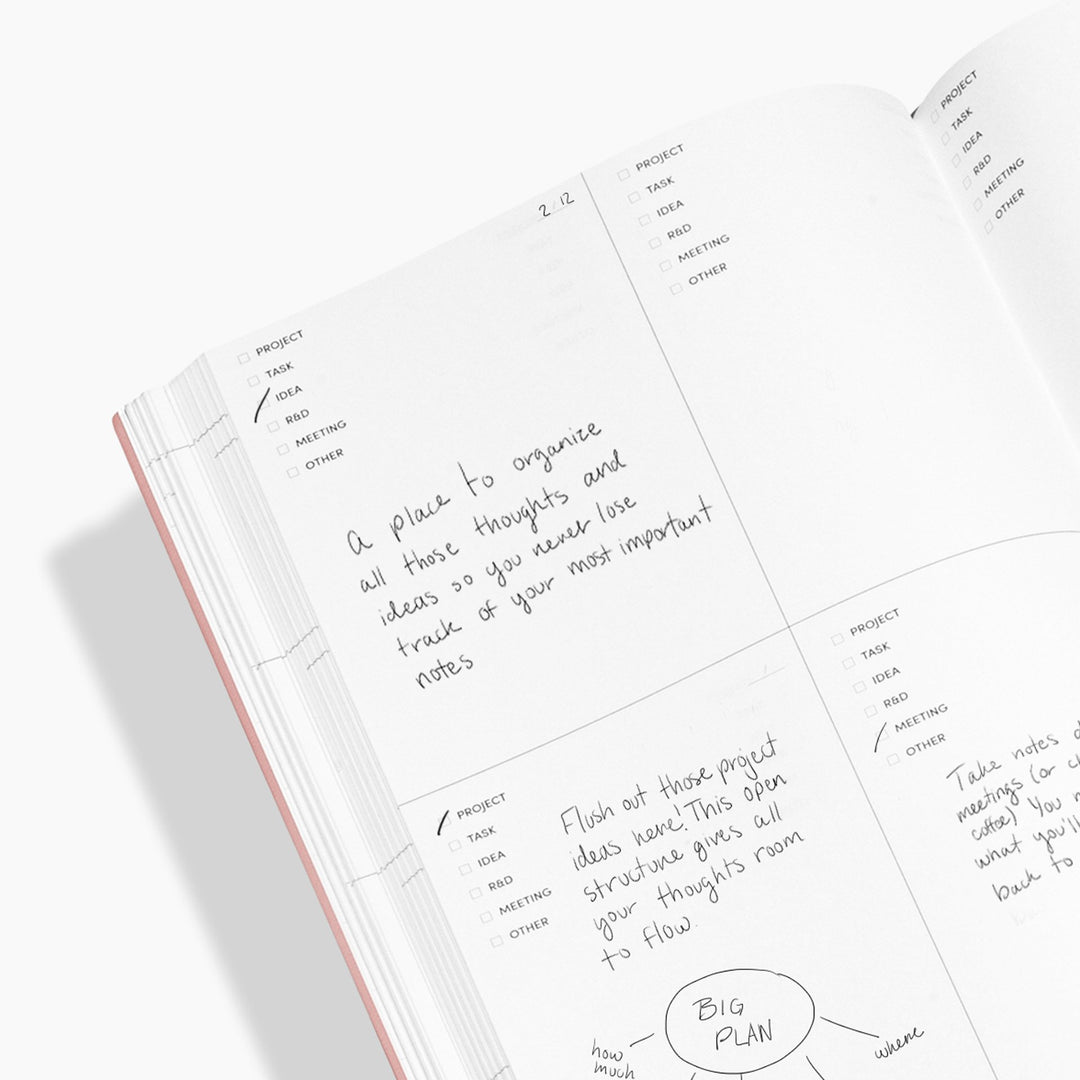 2/12
PROJECT
TASK
IDEA
R&D
MEETING
OTHER
A place to organize
all those thoughts and
ideas so you never lose
track of your most important
notes
PROJECT
TASK
IDEA
R&D
MEETING
OTHER
PROJECT
TASK
IDEA
R&D
MEETING
OTHER
PROJECT
TASK
IDEA
R&D
MEETING
OTHER
Flush out those project
ideas here! This open
structure gives all
your thoughts room
to flow.
BIG
PLAN
how
much
where
PROJECT
TASK
IDEA
R&D
MEETING
OTHER
Take notes
meetings (or
coffee) You
what you'll
back to